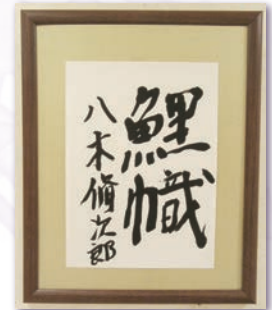 鯉幟
八木脩次郎